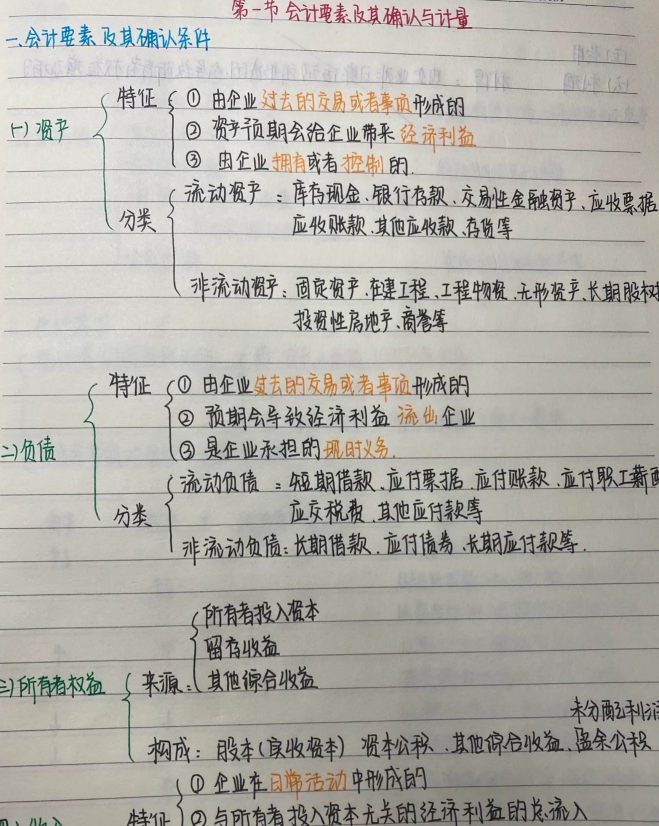 第一节 会计要素及其确认与计量
一、会计要素及其确认条件
(一)资产
特征
① 由企业过去的交易或者事项形成的
② 资产预期会给企业带来经济利益
③ 由企业拥有或者控制的.
分类
流动资产：库存现金、银行存款、交易性金融资产、应收票据
应收账款、其他应收款、存货等
非流动资产：固定资产、在建工程、工程物资、无形资产、长期股权
投资性房地产、商誉等
二)负债
特征
① 由企业过去的交易或者事项形成的
② 预期会导致经济利益流出企业
③ 是企业承担的现时义务.
分类
流动负债：短期借款、应付票据、应付账款、应付职工薪
应交税费、其他应付款等
非流动负债：长期借款、应付债券、长期应付款等.
三)所有者权益
来源：
所有者投入资本
留存收益
其他综合收益
未分配利润
构成：股本(实收资本) 资本公积、其他综合收益、盈余公积
特征
① 企业在日常活动中形成的
② 与所有者投入资本无关的经济利益的总流入